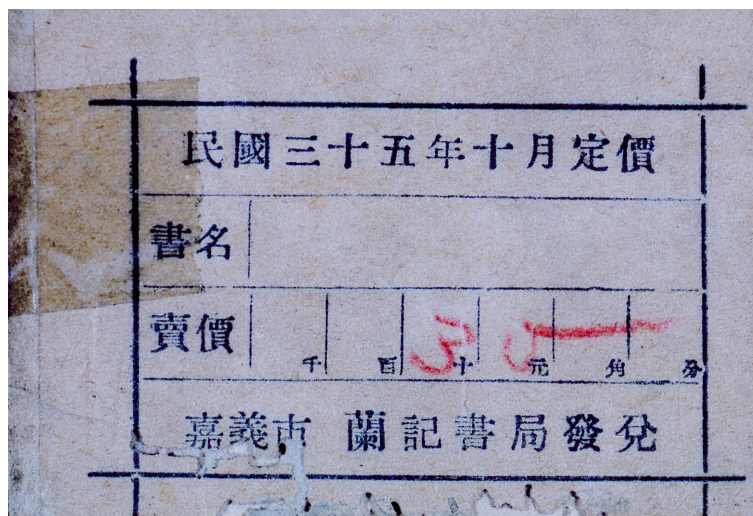 民國三十五年十月定價
書名
賣價 千 百 十 元 角 分
嘉義市 蘭記書局發兌